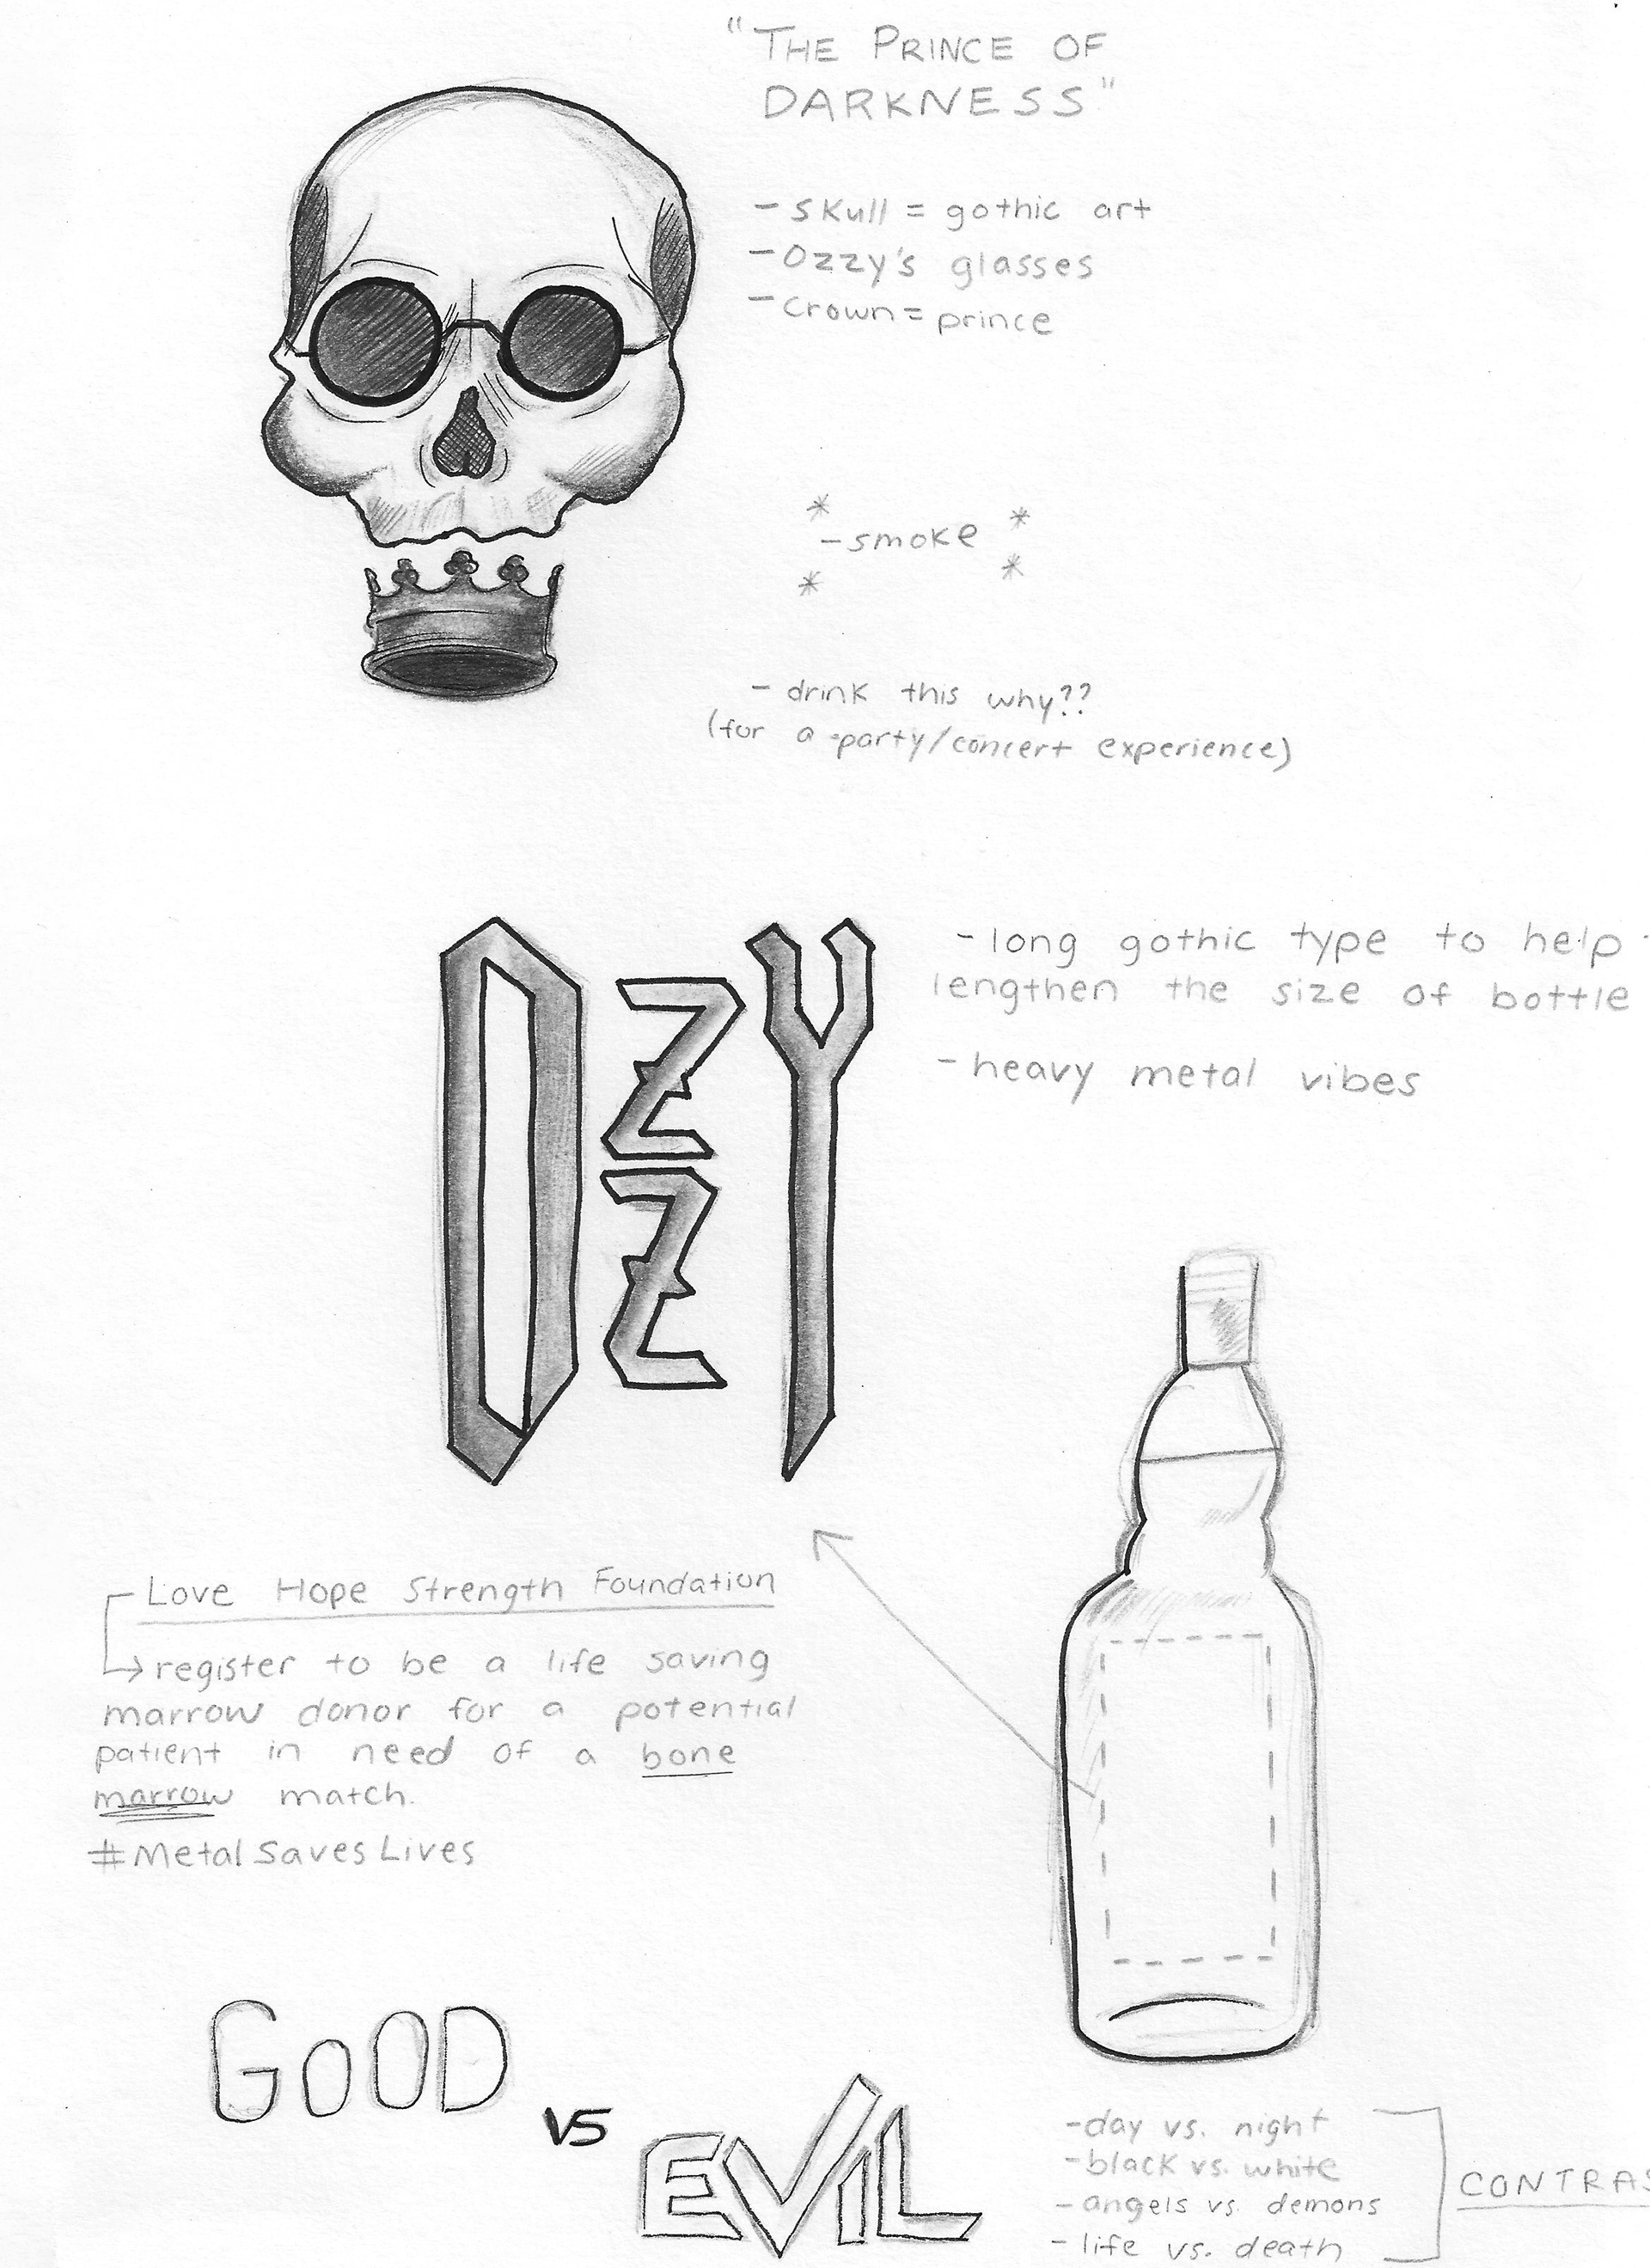 "THE PRINCE OF
DARKNESS"
- skull = gothic art
- Ozzy's glasses
- crown = prince
* - smoke *
* *
- drink this why??
(for a party/concert experience)
OZZY
- long gothic type to help
lengthen the size of bottle
- heavy metal vibes
Love Hope Strength Foundation
→ register to be a life saving
marrow donor for a potential
patient in need of a bone
marrow match.
#MetalSavesLives
GOOD
VS
EVIL
- day vs. night
- black vs. white
- angels vs. demons
- life vs. death
CONTRAS